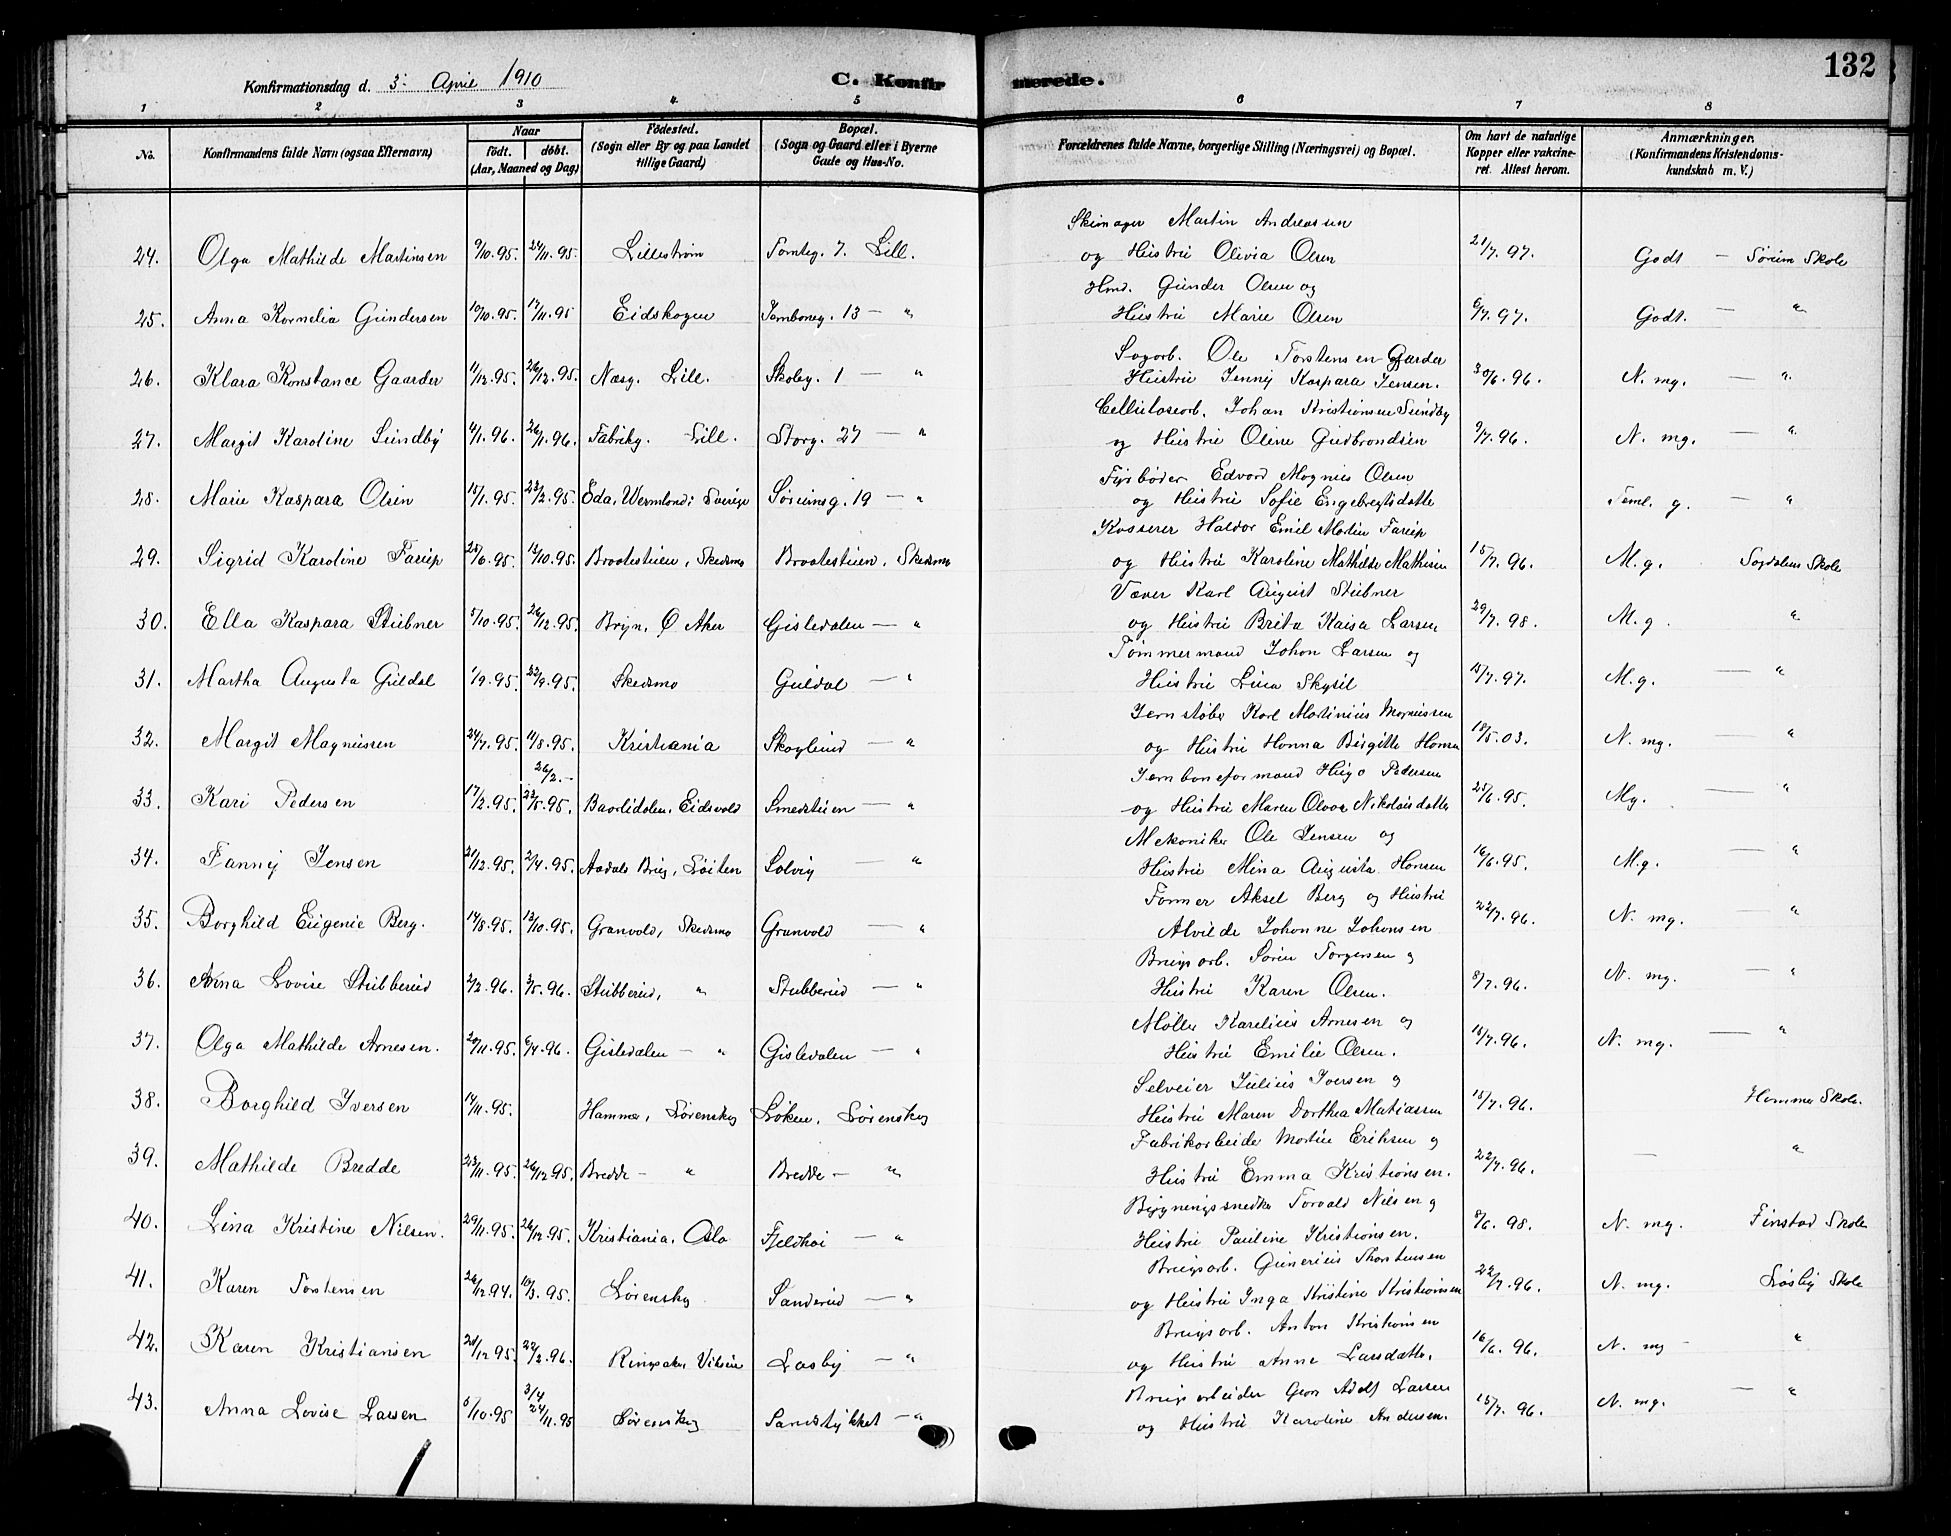 132
Konfirmationsdag d. 3. April 1910 C. Konfirmerede.
1 2 3 4 5 6 7 8
No. Konfirmandens fulde Navn (ogsaa Efternavn) Naar født. døbt. (Aar, Maaned og Dag) Fødested. (Sogn eller By og paa Landet tillige Gaard) Bopæl. (Sogn og Gaard eller i Byerne Gade og Hus-No. Forældrenes fulde Navne, borgerlige Stilling (Næringsvei) og Bopæl. Om havt de naturlige Kopper eller vakcineret. Attest herom. Anmærkninger. (Konfirmandens Kristendomskundskab m. V.)
Martin Andreassen
24. Olga Mathilde Martinsen 9/10.95. 24/11.95. Lillestrøm Tomteg. 7. Lill. og Hustru Olivia Olsen 21/7.97. Godt — Sørum Skole
Gunder Olsen og
25. Anna Kornelia Gundersen 10/10.95. 17/11.95 Eidskogen Jernboneg. 13 — " Hustru Marie Olsen 6/7.97. Godt. — "
Sagarb. Ole Torstensen Gaarder
26. Klara Konstance Gaarder 11/12.95. 26/12.95. Næsg. Lill. Skoleg. 1 — " Hustru Jenny Kaspara Jensen. 30/6.96. N. mg. — "
Cellulosearb. Johan Kristiansen Sundby
27. Margit Karoline Sundby 4/1.96. 26/1.96. Fabrikg. Lill. Storg. 27 — " og Hustru Oline Gudbrandsen 9/7.96. N. mg. — "
Fyrbøder Edvard Magnus Olsen
28. Marie Kaspara Olsen 15/1.95. 23/2.95. Eda, Wermland; Sverige Sørumsg. 19 — " og Hustru Sofie Engebregtsdatte Teml. g. — "
Kasserer Haldor Emil Martin Farup
29. Sigrid Karoline Farup 25/6.95. 13/10.95. Braatestuen, Skedsmo Braatestuen, Skedsmo og Hustru Karoline Mathilde Mathisen 15/7.96. M.g. Sagdalens Skole
Væver Karl August Stubner
30. Ella Kaspara Stubner 5/10.95. 26/12.95. Bryn, Ø Aker Gisledalen — " og Hustru Brita Kaisa Larsen 29/7.98. M.g. "
Tømmermand Johan Larsen og
31. Martha Augusta Guldal 1/9.95. 22/9.95. Skedsmo Guldal — " Hustru Lina Skysil 15/7.97. M.g. — "
Jernstøber Karl Martinius Magnussen
32. Margit Magnussen 24/7.95. 11/8.95. Kristiania Skoglund — " og Hustru Hanna Birgitte Hansen 18/5.03. N. mg. — "
26/2.—
Jernbaneformand Hugo Pedersen
33. Kari Pedersen 17/2.95. 23/5.95. Baarlidalen, Eidsvold Smedstuen — " og Hustru Maren Olava Nikolaisdatter 25/6.95. Mg. — "
Mekaniker Ole Jensen og
34. Fanny Jensen 21/12.95. 2/4.95. Aadals Brug, Løiten Solvig — " Hustru Mina Augusta Hansen 16/6.95. M.g. — "
Former Aksel Berg og Hustru
35. Borghild Eugenie Berg. 14/8.95. 13/10.95. Granvold, Skedsmo Granvold — " Alvilde Johanne Johansen 22/7.96. N. mg. — "
Brugsarb. Søren Torgersen og
36. Anna Lovise Stubberud 2/2.96. 3/5.96. Stubberud, " Stubberud — " Hustru Karen Olsen. 8/7.96. N. mg. — "
Møller Karelius Arnesen og
37. Olga Mathilde Arnesen. 20/11.95. 6/4.96. Gisledalen — " Gisledalen — " Hustru Emilie Olsen. 15/7.96. N. mg. — "
Selveier Julius Iversen og
38. Borghild Iversen 14/11.95. Hammer, Lørenskog Løken, Lørenskog Hustru Maren Dorthea Matiassen 15/7.96. Hammer Skole.
Fabrikarbeider Martin Eriksen og
39. Mathilde Bredde 23/11.95. 26/12.95. Bredde — " Bredde — " Hustru Emma Kristiansen. 22/7.96. — "
Bygningssnedker Torvald Nilsen og
40. Lina Kristine Nilsen. 29/11.95. 26/12.95. Kristiania, Oslo Fjeldhøi — " Hustru Pauline Kristiansen. 8/6.98. N. mg. Finstad Skole
Brugsarb. Gunerius Thorstensen
41. Karen Torstensen 26/12.94. 10/3.95. Lørenskog Sanderud — " og Hustru Inga Kristine Kristiansen 22/7.96. N. mg. Løsby Skole
Brugsarb. Anton Kristiansen
42. Karen Kristiansen 28/12.95. 22/2.96. Ringsaker, Losby — " og Hustru Anne Larsdatter. 16/6.96. N. mg — "
3/4
Brugsarbeider Adolf Larsen
43. Anna Lovise Larsen 5/10.95 24/11.95 Lørenskog Sandstykket — " og Hustru Karoline Andersen. 15/7.96. N. mg. — "